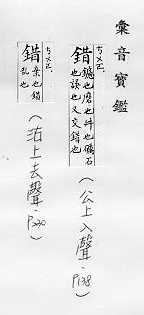 彙音寶鑑
錯
ㄘㄨㄛˋ
鑢也磨也乖也礪石
也誤也又交錯也
（公上入聲，P138）
錯
ㄘㄨㄛˋ
亲也錯
乱也
（沽上去聲，P220）